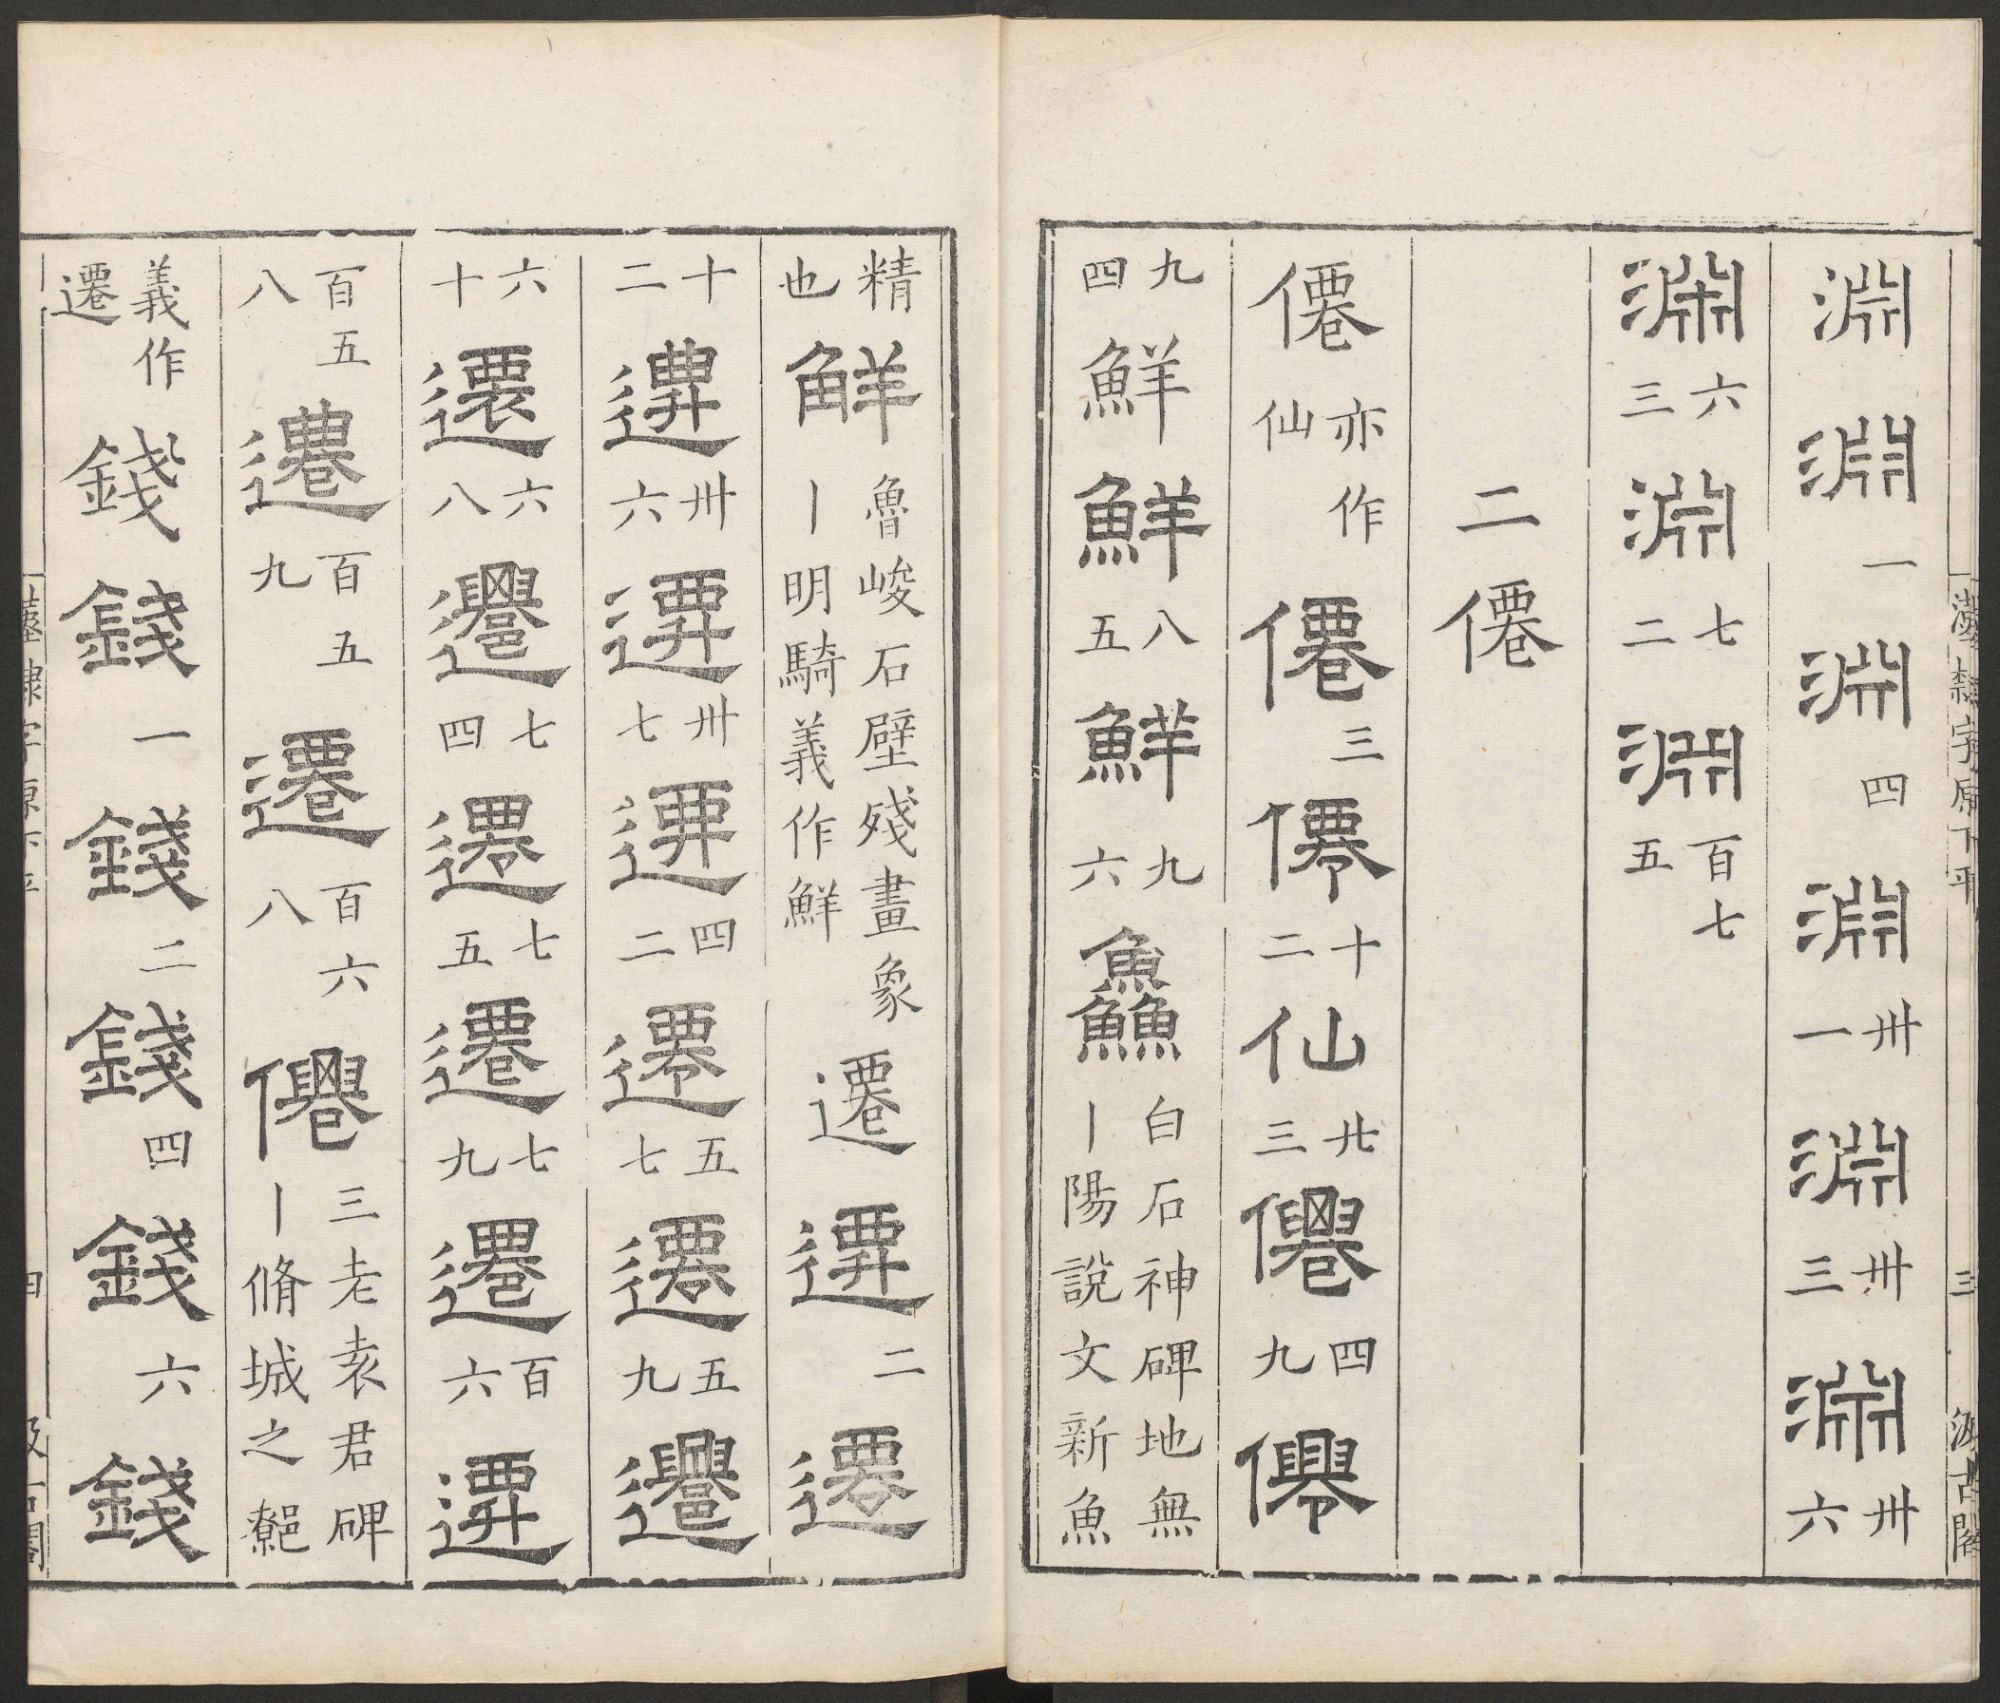 淵 淵 一 淵 四 淵 卅一 淵 卅三 淵 卅六
淵 六三 淵 七二 淵 百七五
二僊
僊 亦作仙 僊 三 僊 十二 仙 廿三 僊 四九 僊
九四 鮮 鮮 八五 鮮 九六 鱻 白石神碑地無丨陽說文新魚
精也 鮮 魯峻石壁殘畫象丨明騎義作鮮 遷 遷 二 遷
十二 遷 卅六 遷 卅七 遷 四二 遷 五七 遷 五九 遷
六十 遷 六八 遷 七四 遷 七五 遷 七九 遷 百六 遷
百五八 遷 百五九 遷 百六八 僊 三老袁君碑丨脩城之
義作遷 錢 錢 一 錢 二 錢 四 錢 六 錢
漢隸字原下平 三 汲古閣
漢隸字原下平 四 汲古閣